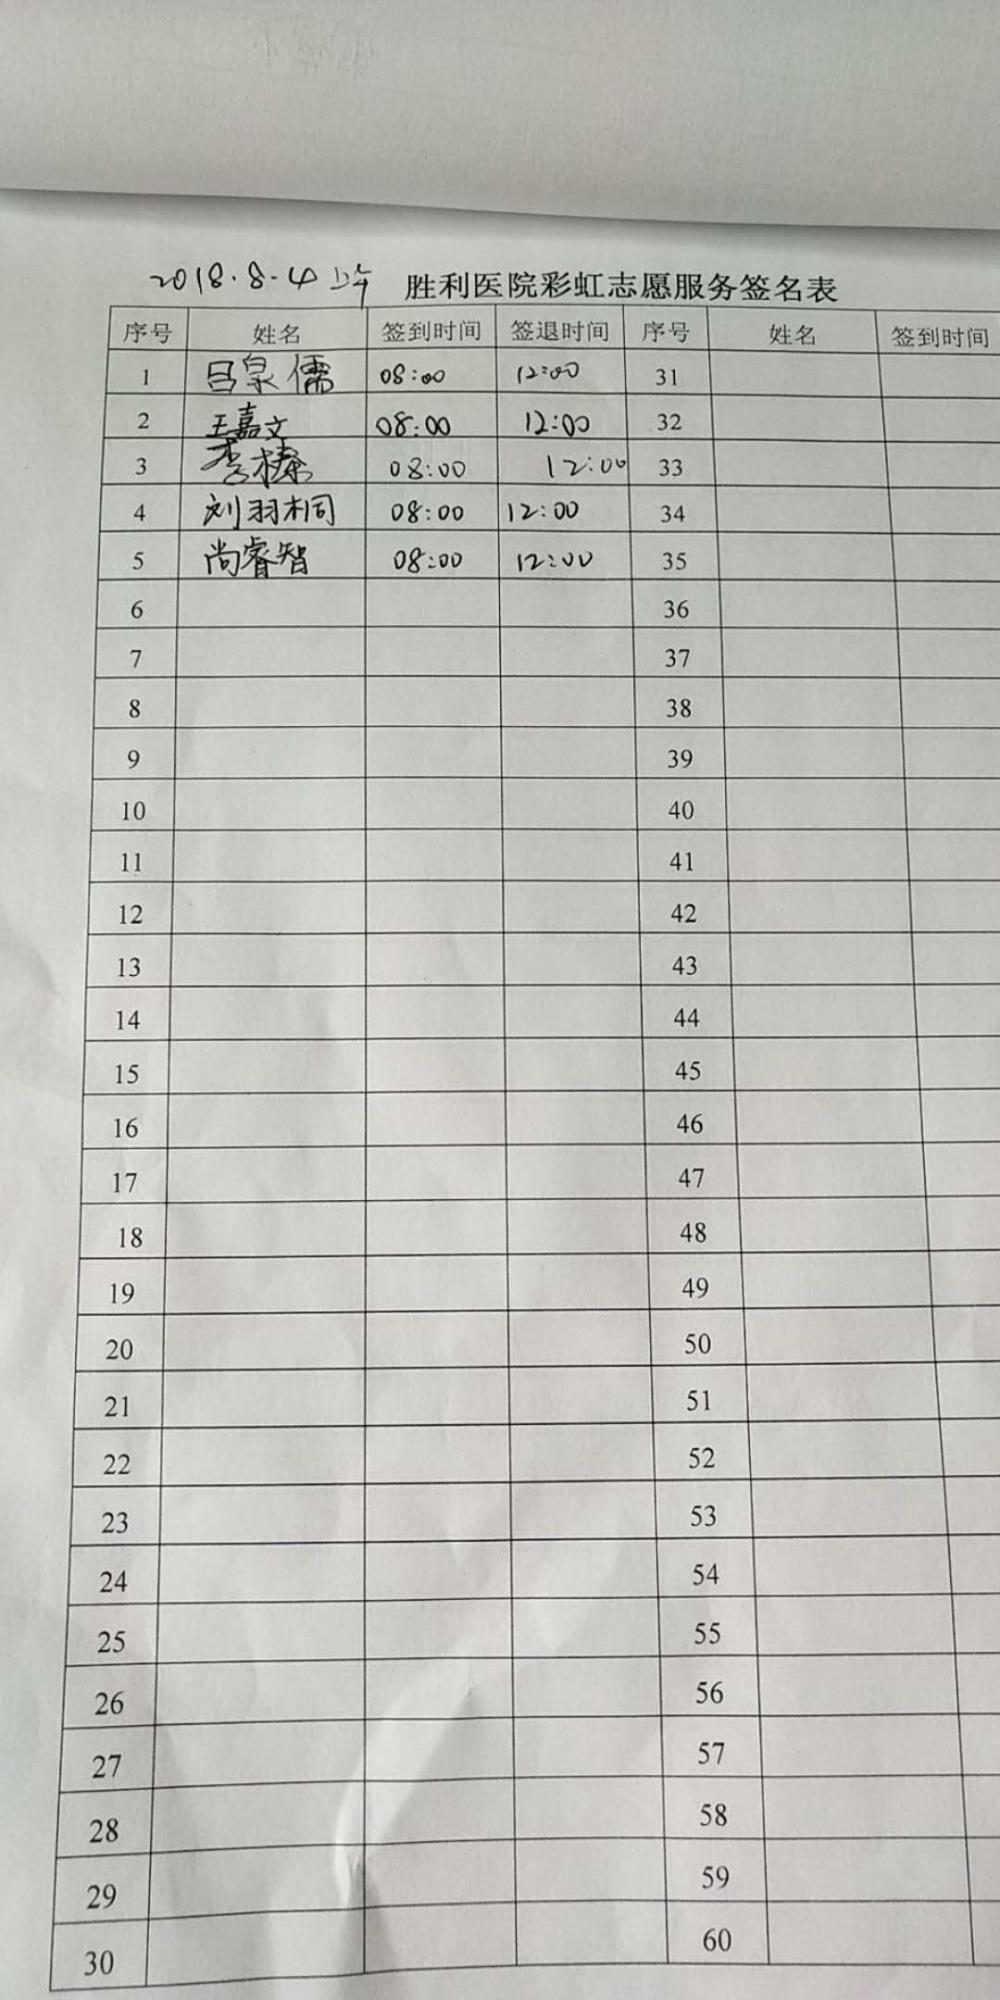 2018.8.4 上午 胜利医院彩虹志愿服务签名表
序号 姓名 签到时间 签退时间 序号 姓名 签到时间
1 吕泉儒 08:00 12:00 31
2 王嘉文 08:00 12:00 32
3 李榛 08:00 12:00 33
4 刘羽桐 08:00 12:00 34
5 尚睿智 08:00 12:00 35
6 36
7 37
8 38
9 39
10 40
11 41
12 42
13 43
14 44
15 45
16 46
17 47
18 48
19 49
20 50
21 51
22 52
23 53
24 54
25 55
26 56
27 57
28 58
29 59
30 60